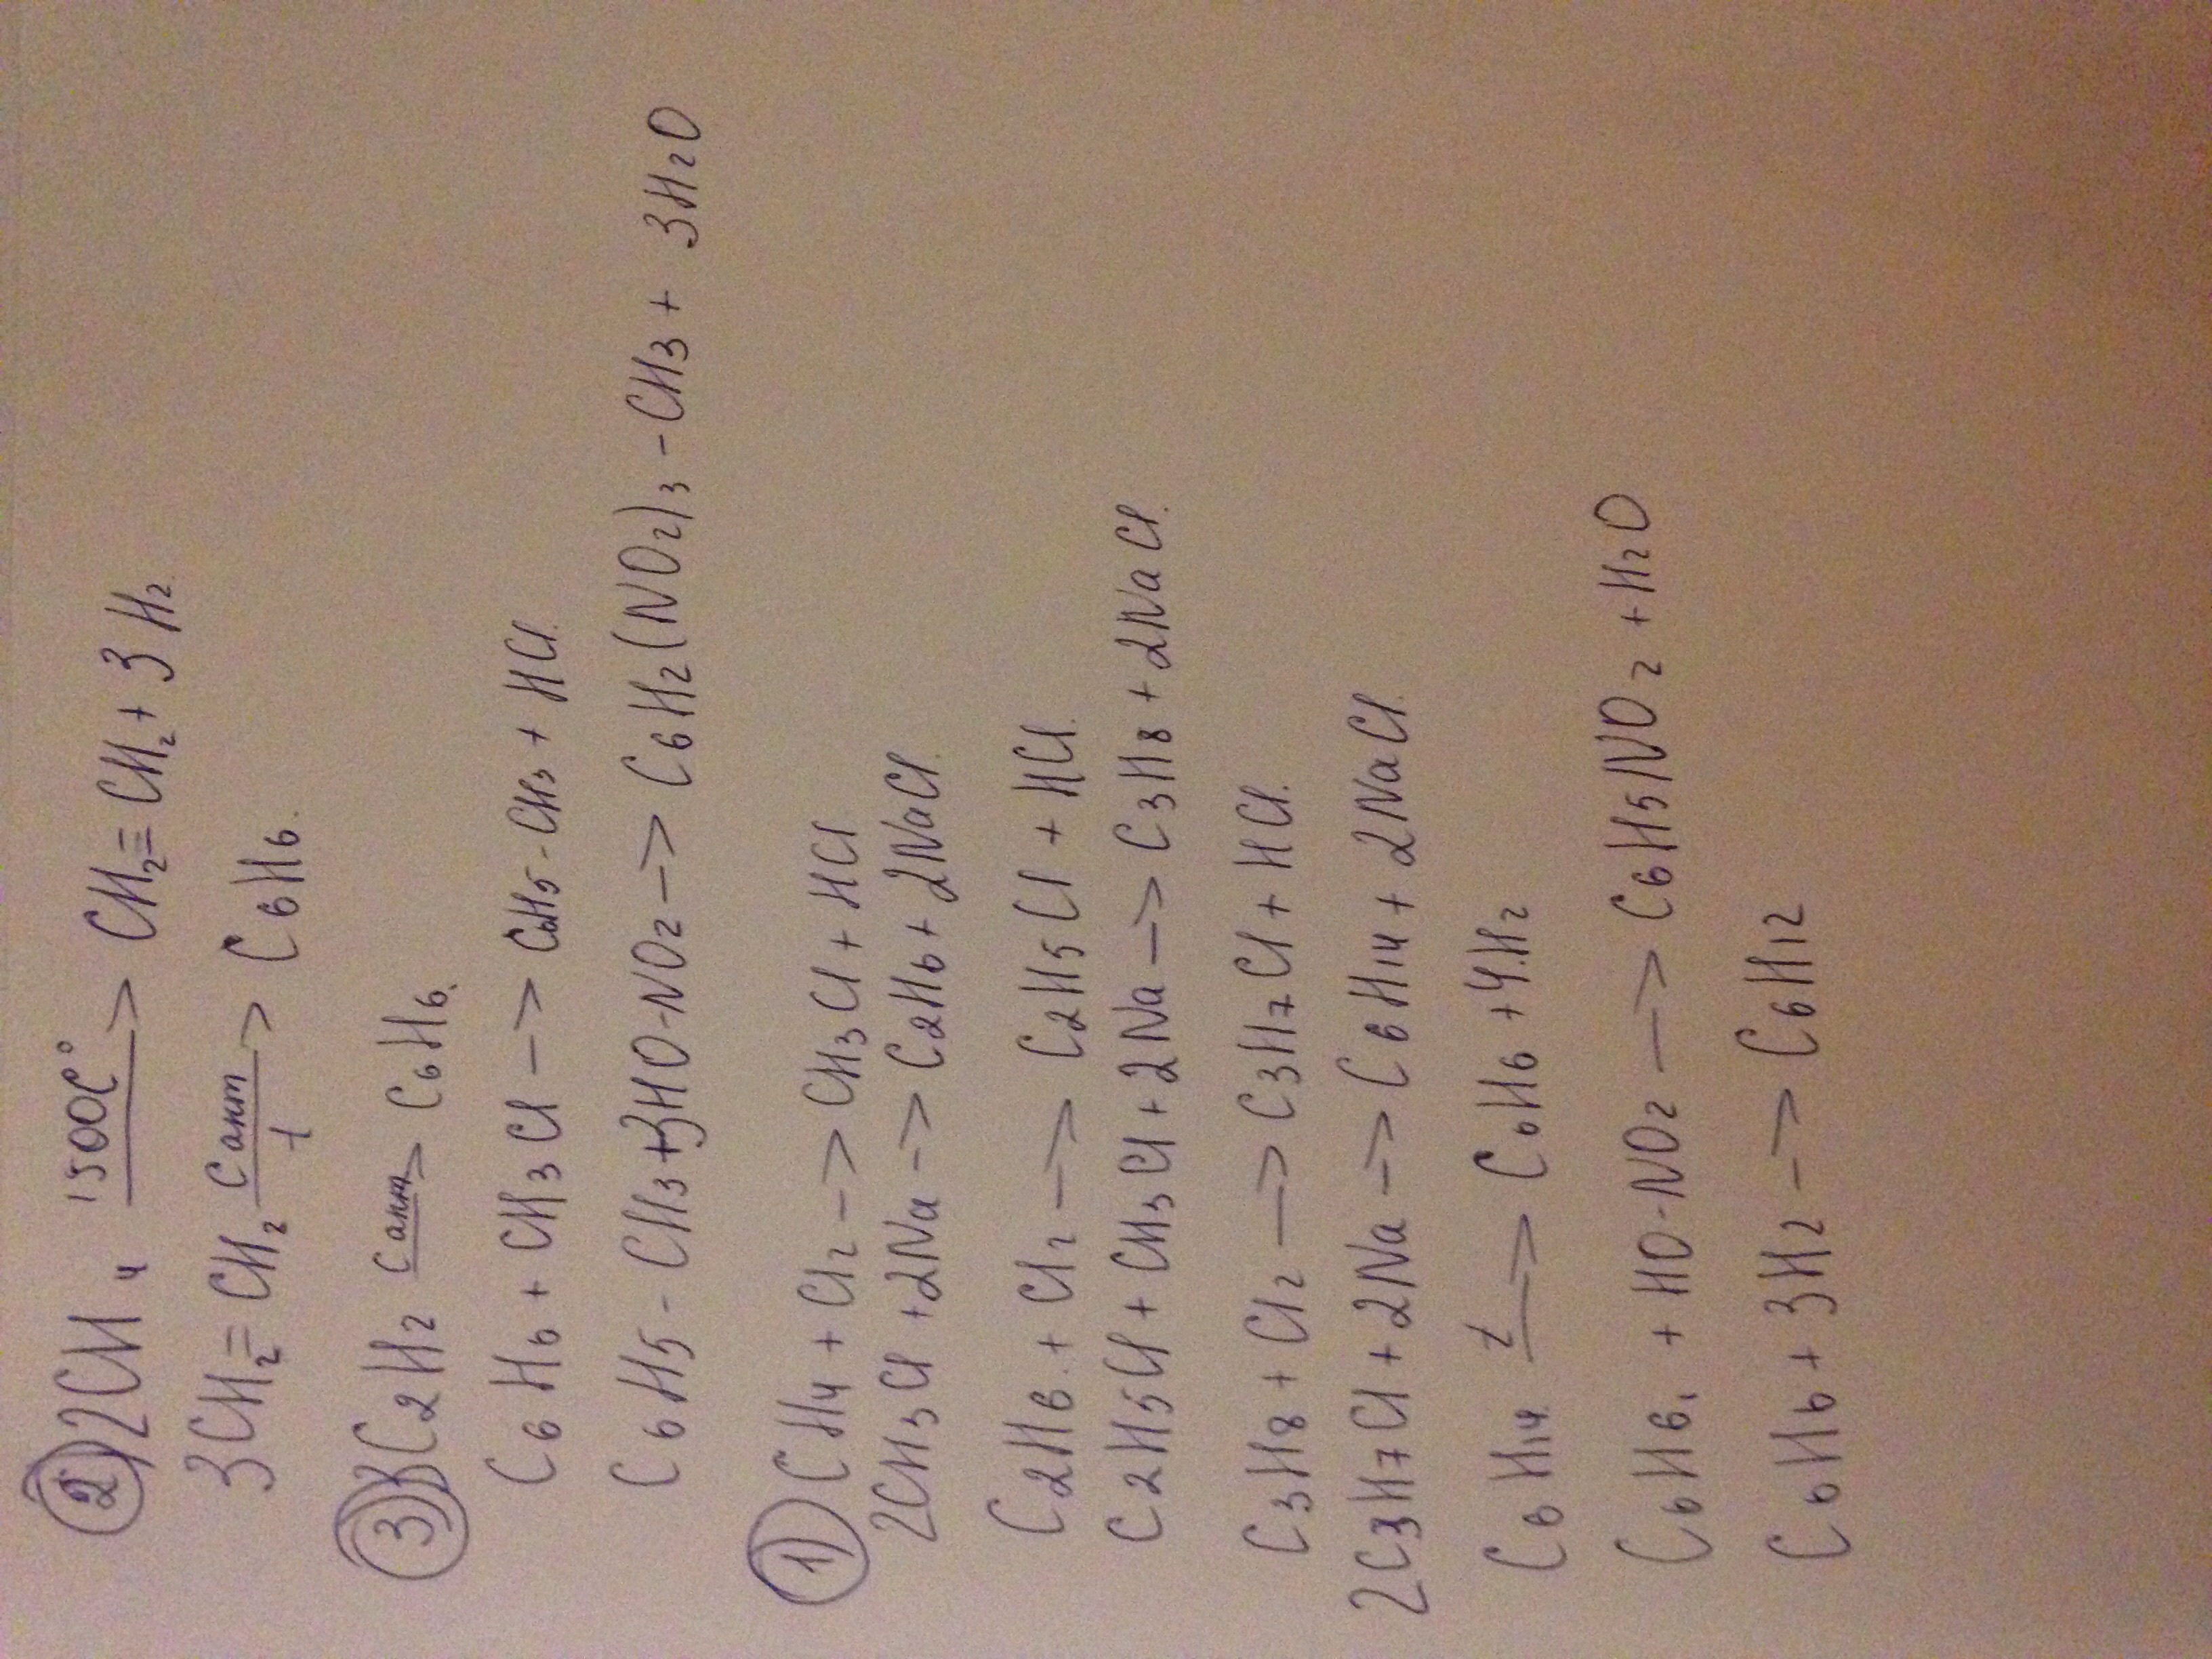 ② 2CH₄ 1500C° —> CH₂=CH₂ + 3H₂
3CH₂=CH₂ C акт t —> C₆H₆.
③ 3C₂H₂ C акт —> C₆H₆.
C₆H₆ + CH₃Cl —> C₆H₅-CH₃ + HCl.
C₆H₅-CH₃ + 3HO-NO₂ —> C₆H₂(NO₂)₃-CH₃ + 3H₂O
① CH₄ + Cl₂ —> CH₃Cl + HCl
2CH₃Cl + 2Na —> C₂H₆ + 2NaCl.
C₂H₆ + Cl₂ —> C₂H₅Cl + HCl.
C₂H₅Cl + CH₃Cl + 2Na —> C₃H₈ + 2NaCl.
C₃H₈ + Cl₂ —> C₃H₇Cl + HCl.
2C₃H₇Cl + 2Na —> C₆H₁₄ + 2NaCl.
C₆H₁₄ t —> C₆H₆ + 4H₂
C₆H₆ + HO-NO₂ —> C₆H₅NO₂ + H₂O
C₆H₆ + 3H₂ —> C₆H₁₂